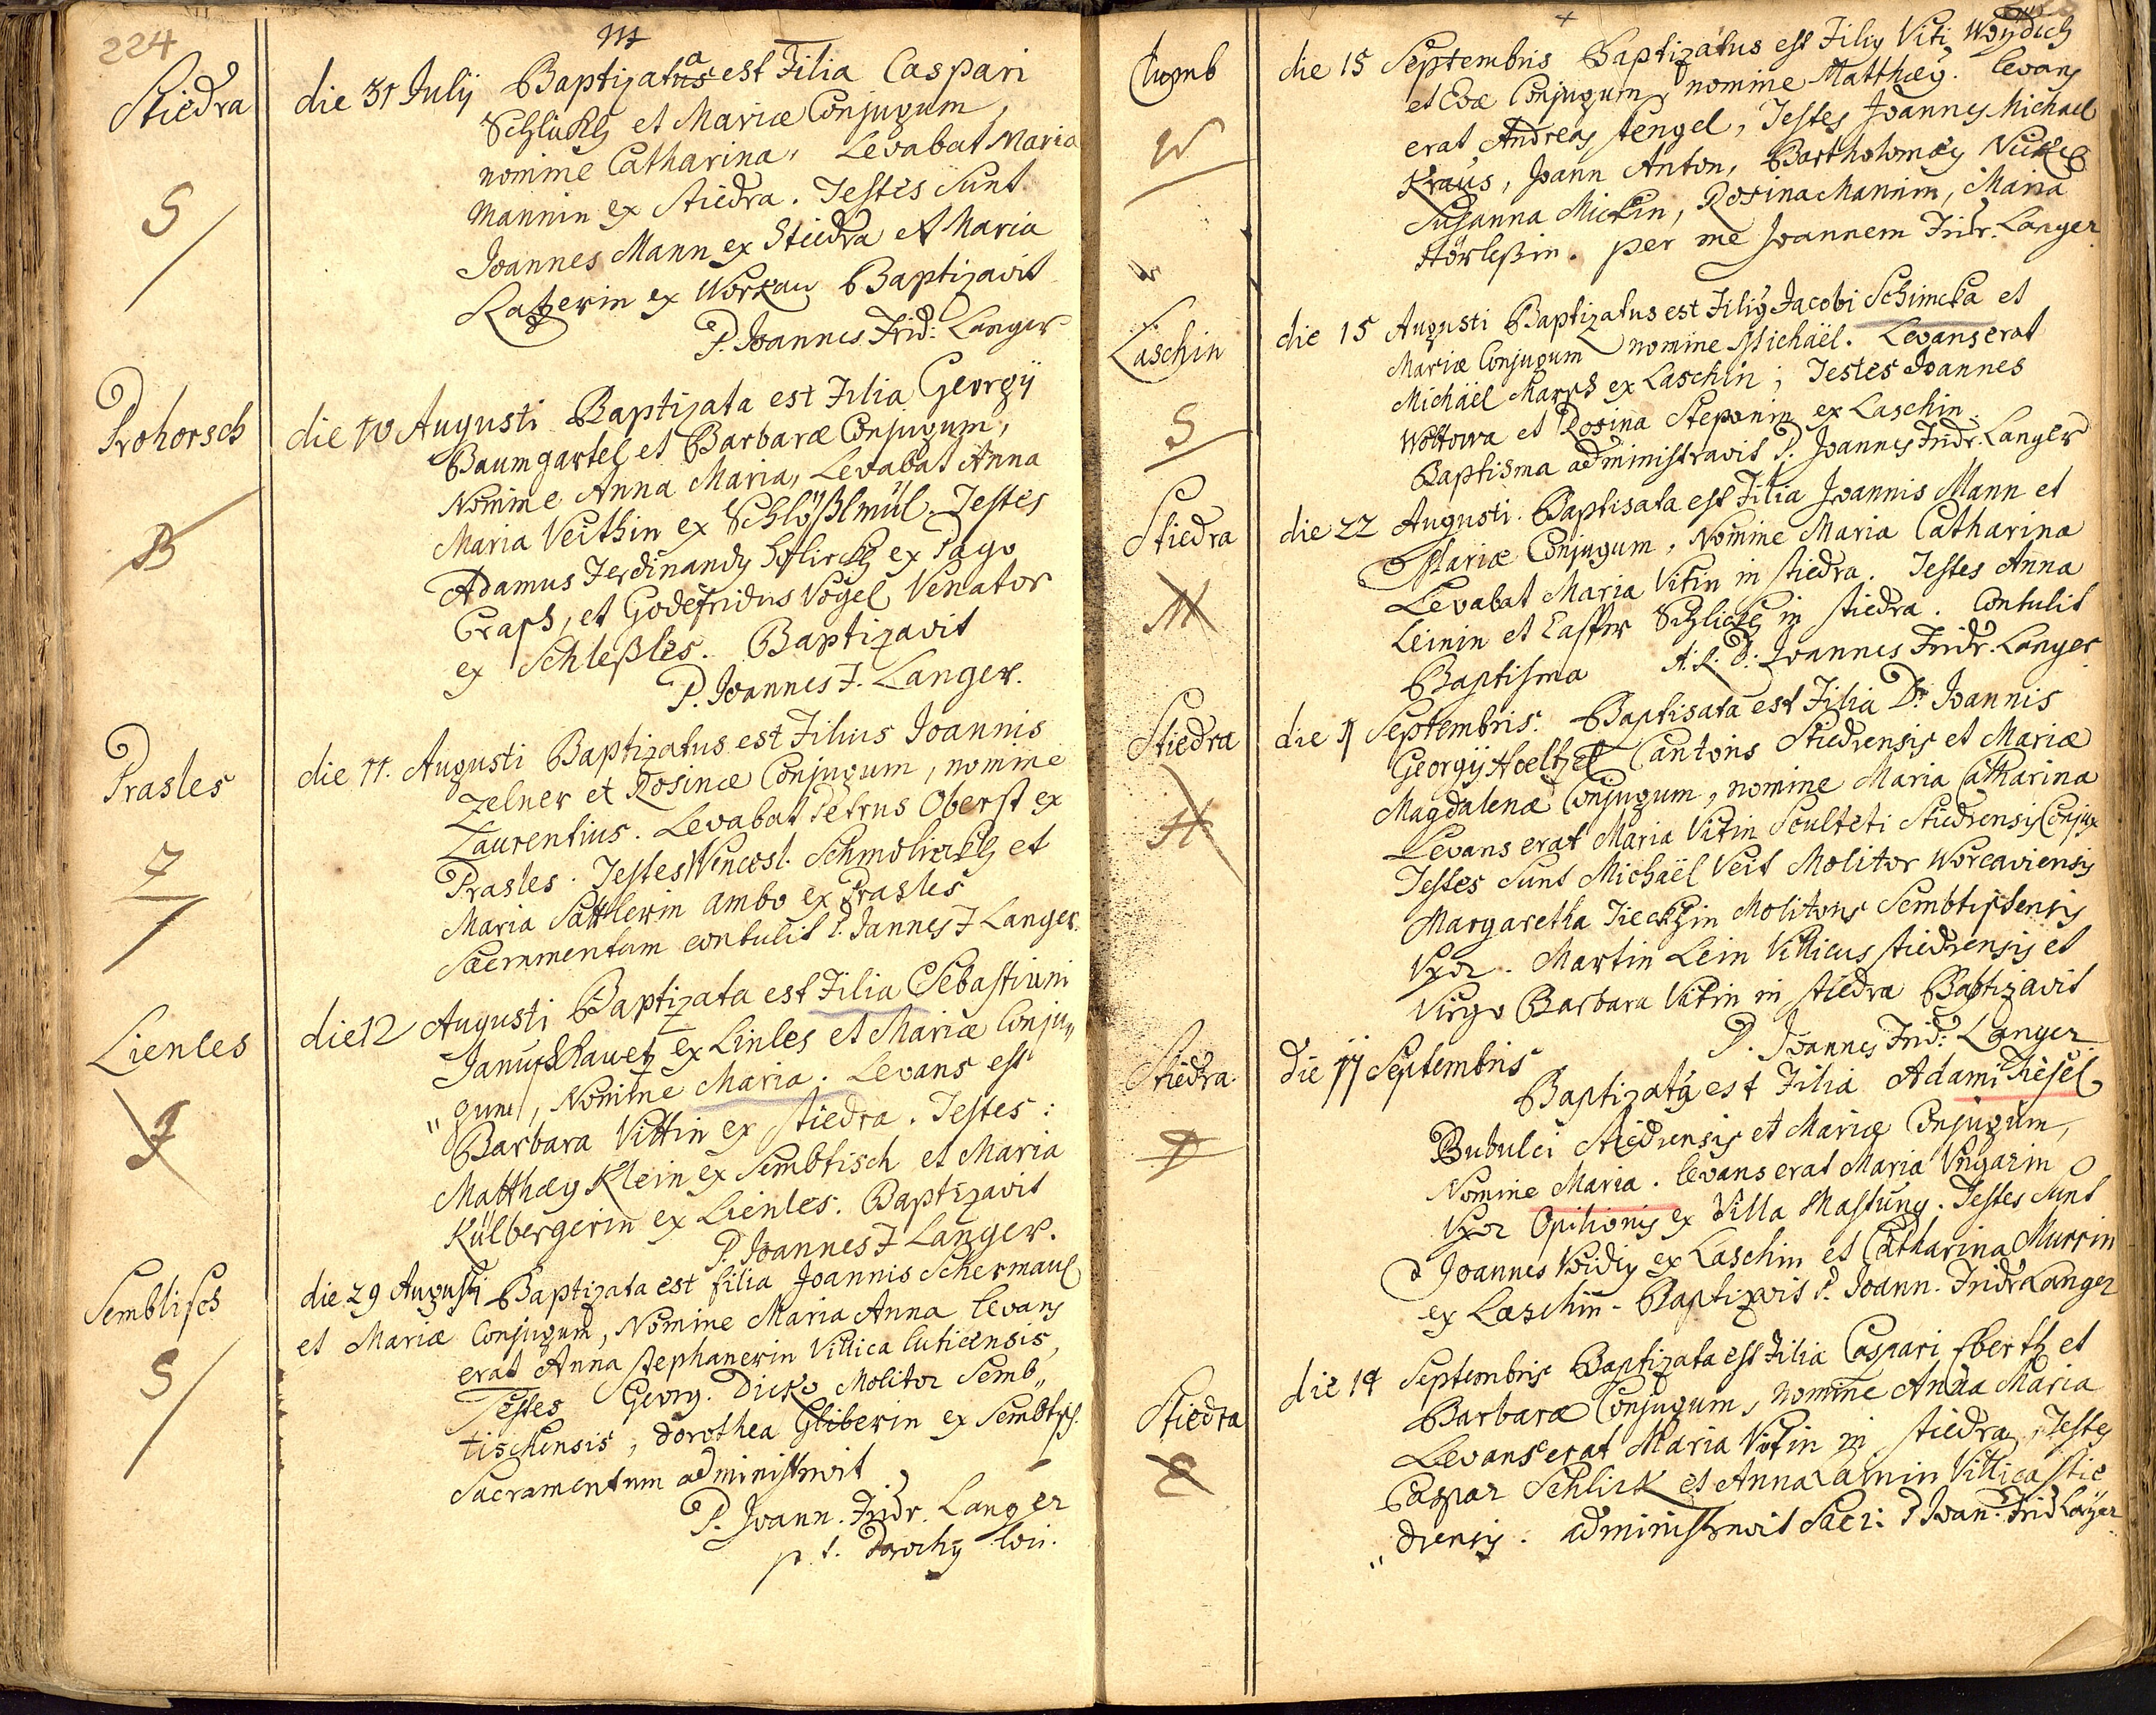 224
Stiedra
S
die 31 July Baptizata est Filia Caspari
Schlückh et Mariæ Conjugum,
nomine Catharina, Levabat Maria
Mannin ex Stiedra. Testes Sunt
Joannes Mann ex Stiedra et Maria
Katzerin ex Workau Baptizavit
P. Joannes Frid: Langer
Prohorsch
B
die 10 Augusti Baptizata est Filia Georgÿ
Baumgartel et Barbaræ Conjugum,
Nomine Anna Maria, Levabat Anna
Maria Veithin ex Schlößlmül. Testes
Adamus Ferdinandy ex Pago
et Godefridus Vogel Venator
ex Schleßles. Baptizavit
P. Joannes F. Langer.
Prasles
Z
die 11. Augusti Baptizatus est Filius Joannis
Zelner et Rosinæ Conjugum, nomine
Laurentius. Levabat Petrus Oberst ex
Prasles. Testes Wencesl. et
Maria Sattlerin ambo ex Prasles
Sacrumentum contulit P. Jannes F Langer.
Lienles
J
die 12 Augusti Baptizata est Filia Sebastiani
ex Linles et Mariæ Conju„
„gum, Nomine Maria. Levans est
Barbara Vittin ex Stiedra. Testes:
Matthæy Klein ex Sembtisch et Maria
Külbergerin ex Lienles. Baptizavit
P. Joannes F Langer.
Semblisch
S
die 29 Augusti Baptizata est filia Joannis Schermaul
et Mariæ Conjugum, Nomine Maria Anna levans
erat Anna Stephanerin Villica luticensis,
Testes Georg. Molitor Semb„
tischensis, Dorothea Gliberin ex Sembtisch.
Sacramentum administravit
P. Joann. Fridr. Langer
p. t. Parochy loci.
Chumb
W
die 15 Septembris Baptizatus est Filiy Viti Woydich
et Evæ Conjugum, nomine Matthæy. Levans
erat Andreas Stengel, Testes Joannes Michael
Kraus, Joann Anton, Bartholomæy
Susanna Mickin, Rosina Mannin, Maria
per me Joannem Fridr. Langer
Laschin
S
die 15 Augusti Baptizatus est Filiy Jacobi Schimcka et
Mariæ Conjugum nomine Michaël. Levans erat
Michaël ex Laschin; Testes Joannes
Wottowa et Rosina Steponin ex Laschin.
Baptisma administravit P. Joannes Fridr. Langer
Stiedra
M
die 22 Augusti. Baptisata est Filia Joannis Mann et
Mariæ Conjugum, Nomine Maria Catharina
Levabat Maria Vitin in Stiedra. Testes Anna
Leinin et Casper Schlickh in Stiedra. Contulit
Baptisma A. R. D. Joannes Fridr. Langer
Stiedra
H
die Septembris. Baptisata est Filia D. Joannis
Georgÿ Hoeltzel Cantoris Stiedrensis et Mariæ
Magdalenæ Conjugum, nomine Maria Catharina
Levans erat Maria Vitin Sculteti Stiedrensis Conjux
Testes Sunt Michaël Veit Molitor Worcaviensis
Margaretha Molitoris Sembtischensis
Vxor. Martin Lein Villicus Stiedrensis et
Virgo Barbara Vitin in Stiedra Baptizavit
P. Joannes Frid: Langer
Stiedra
die 11 Septembris
Baptizata est Filia Adami Kiesel
Bubulci Stiedrensis et Mariæ Conjugum,
Nomine Maria. levans erat Maria Vngarin
Vxor Opilionis ex Villa Mastung. Testes Sunt
Joannes Voidig ex Laschin et Catharina Murrin
ex Laschin. Baptizavit P. Joann. Fridr Langer
Stiedra
E
die 14 Septembris Baptizata est Filia Caspari Eberth et
Barbaræ Conjugum, nomine Anna Maria
Levans erat Maria Vitin in Stiedra, Testes
Caspar Schlick et Anna Villica Stie
„drensis. administravit Sacr: P Joan. Frid Langer